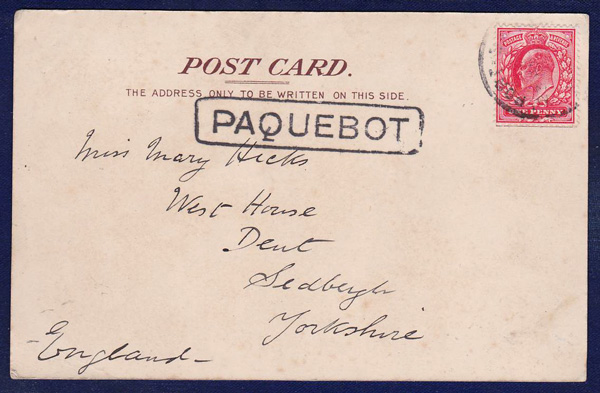 POST CARD.
THE ADDRESS ONLY TO BE WRITTEN ON THIS SIDE.
PAQUEBOT
POSTAGE REVENUE
E PENNY
Miss Mary Hicks
West House
Dent
Sedbergh
Yorkshire
-England-